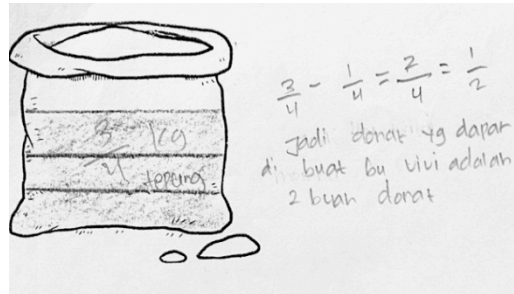 3/4 kg
tepung
3/4 - 1/4 = 2/4 = 1/2
Jadi donat yg dapat
di buat bu vivi adalah
2 buah donat